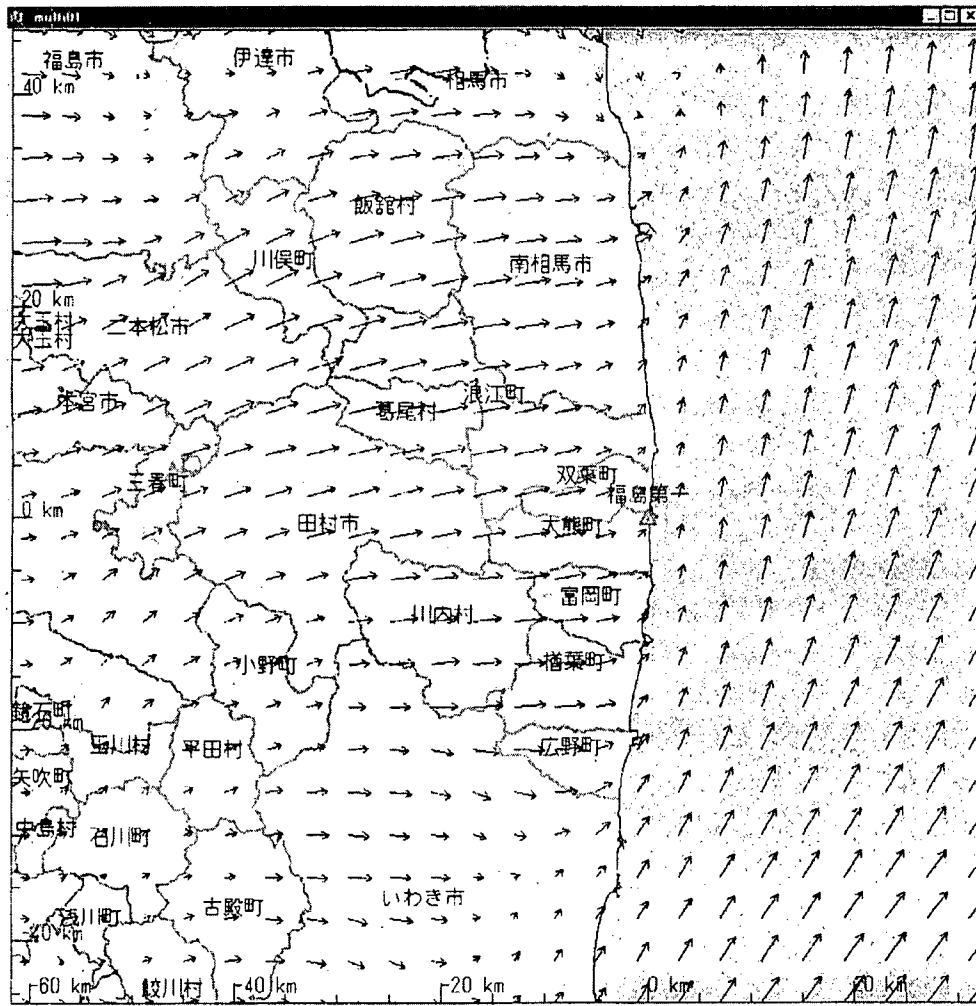 福島市
伊達市
相馬市
40 km
飯舘村
川俣町
南相馬市
20 km
大玉村
二本松市
大玉村
本宮市
浪江町
葛尾村
三春町
双葉町
福島第一
0 km
田村市
大熊町
富岡町
川内村
小野町
楢葉町
鏡石町
玉川村
平田村
広野町
矢吹町
中島村
石川町
いわき市
浅川町
古殿町
-40 km
-60 km
鮫川村
-40 km
-20 km
0 km
20 km